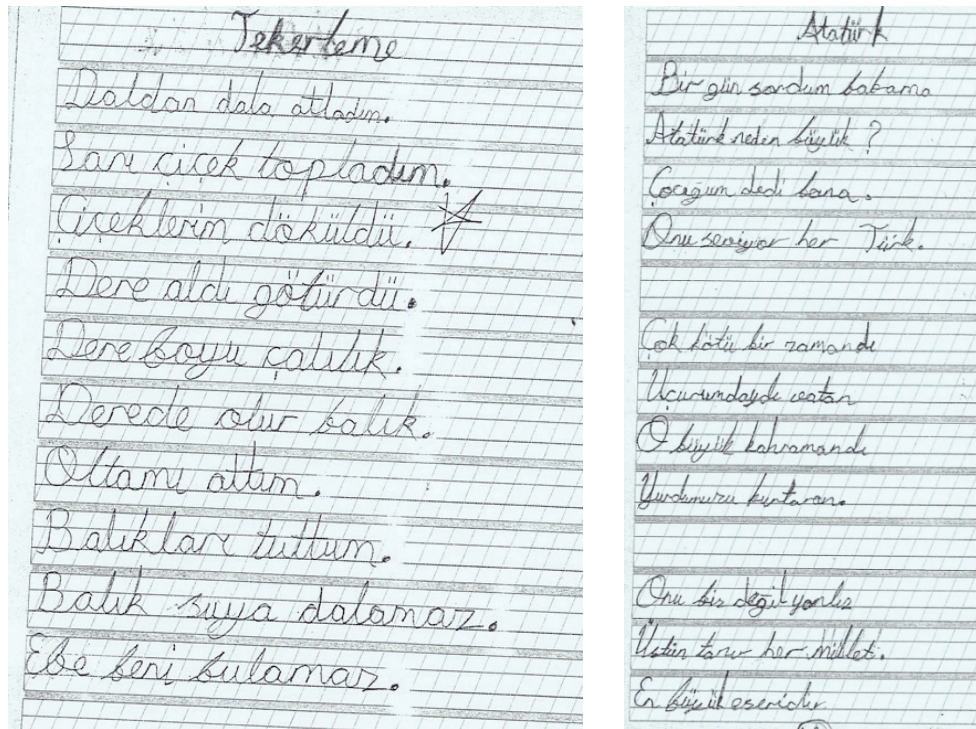 Tekerleme
Daldan dala atladım.
Sarı çiçek topladım.
Çiçeklerin döküldü.
Dere aldı götürdü.
Dere boyu çalılık.
Derede olur balık.
Oltamı attım.
Balıkları tuttum.
Balık suya dalamaz.
Ebe beni bulamaz.
Atatürk
Bir gün sordum babama
Atatürk neden büyük ?
Çocuğum dedi bana.
Onu seviyor her Türk.
Çok kötü bir zamandı
Uçurumdaydı vatan
O büyük kahramandı
Yurdumuzu kurtaran.
Onu biz değil yanlız
Üstün tanır her millet.
En büyük eseridir